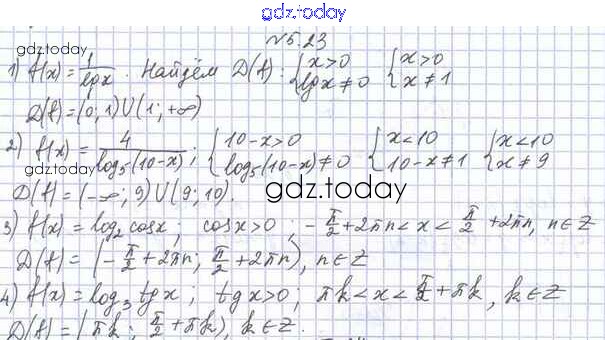 gdz.today
№5.23
gdz.today
1) f(x) = 1/lgx. Найдём D(f): { x>0 lgx≠0 { x>0 x≠1
D(f) = (0; 1)∪(1; +∞)
gdz.today
2) f(x) = 4/log₅(10-x); { 10-x>0 log₅(10-x)≠0 { x<10 10-x≠1 { x<10 x≠9
D(f) = (-∞; 9)∪(9; 10).
gdz.today
3) f(x) = log₂cosx; cosx>0; -π/2+2πn<x<π/2+2πn, n∈Z
D(f) = (-π/2+2πn; π/2+2πn), n∈Z
4) f(x) = log₃tgx; tgx>0; πk<x<π/2+πk, k∈Z
D(f) = (πk; π/2+πk), k∈Z.